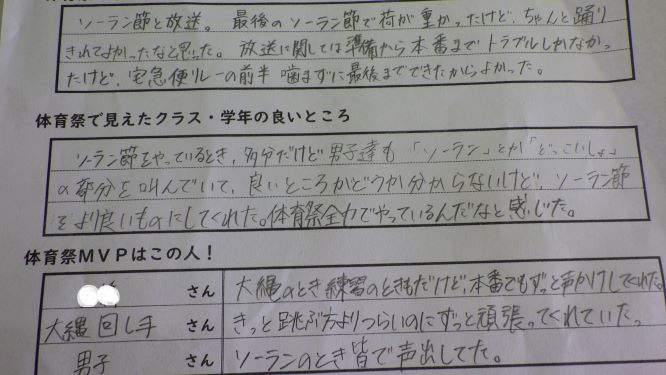 ソーラン節と放送。最後のソーラン節で荷が重かったけど、ちゃんと踊り
きれてよかったなと思った。放送に関しては準備から本番までトラブルしかなかっ
たけど、宅急便リレーの前半噛まずに最後までできたからよかった。
体育祭で見えたクラス・学年の良いところ
ソーラン節をやっているとき、多分だけど男子達も「ソーラン」とか「どっこいしょ」
の部分を叫んでいて、良いところかどうか分からないけど、ソーラン節
をより良いものにしてくれた。体育祭全力でやっているんだなと感じた。
体育祭MVPはこの人！
さん 大縄のとき練習のときもだけど、本番でもずっと声かけしてくれた。
大縄回し手 さん きっと跳ぶ方よりつらいのにずっと頑張ってくれていた。
男子 さん ソーランのとき皆で声出してた。